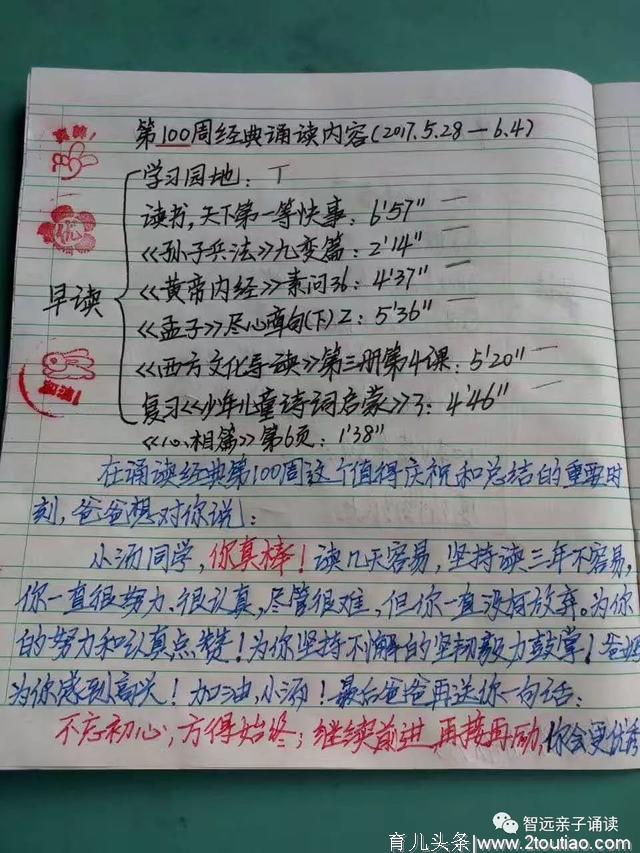 第100周经典诵读内容(2017.5.28—6.4)
学习园地：T
读书,天下第一等快事：6'57"
《孙子兵法》九变篇：2'14"
《黄帝内经》素问36：4'37"
早读
《孟子》尽心章句(下)2：5'36"
《西方文化导读》第三册第4课：5'20"
复习《少年儿童诗词启蒙》3：4'46"
《心相篇》第6页：1'38"
优
在诵读经典第100周这个值得庆祝和总结的重要时
刻,爸爸想对你说：
小汤同学,你真棒！读几天容易,坚持读三年不容易,
你一直很努力,很认真,尽管很难,但你一直没有放弃。为你
的努力和认真点赞！为你坚持不懈的坚韧毅力鼓掌！爸妈
为你感到高兴！加油,小汤！最后爸爸再送你一句话：
不忘初心,方得始终；继续前进,再接再励,你会更优秀
智远亲子诵读
育儿头条/www.2toutiao.com